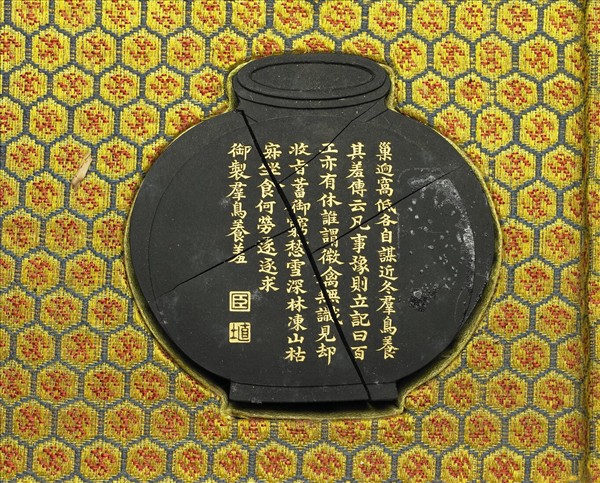 巢逈窩低各自謀近冬羣鳥養
其羞傳云凡事豫則立記曰百
工亦有休誰謂微禽無識見却
收旨蓄御窮愁雪深林凍山枯
寂坐食何勞逐逐求
御製羣鳥養羞
臣
埴